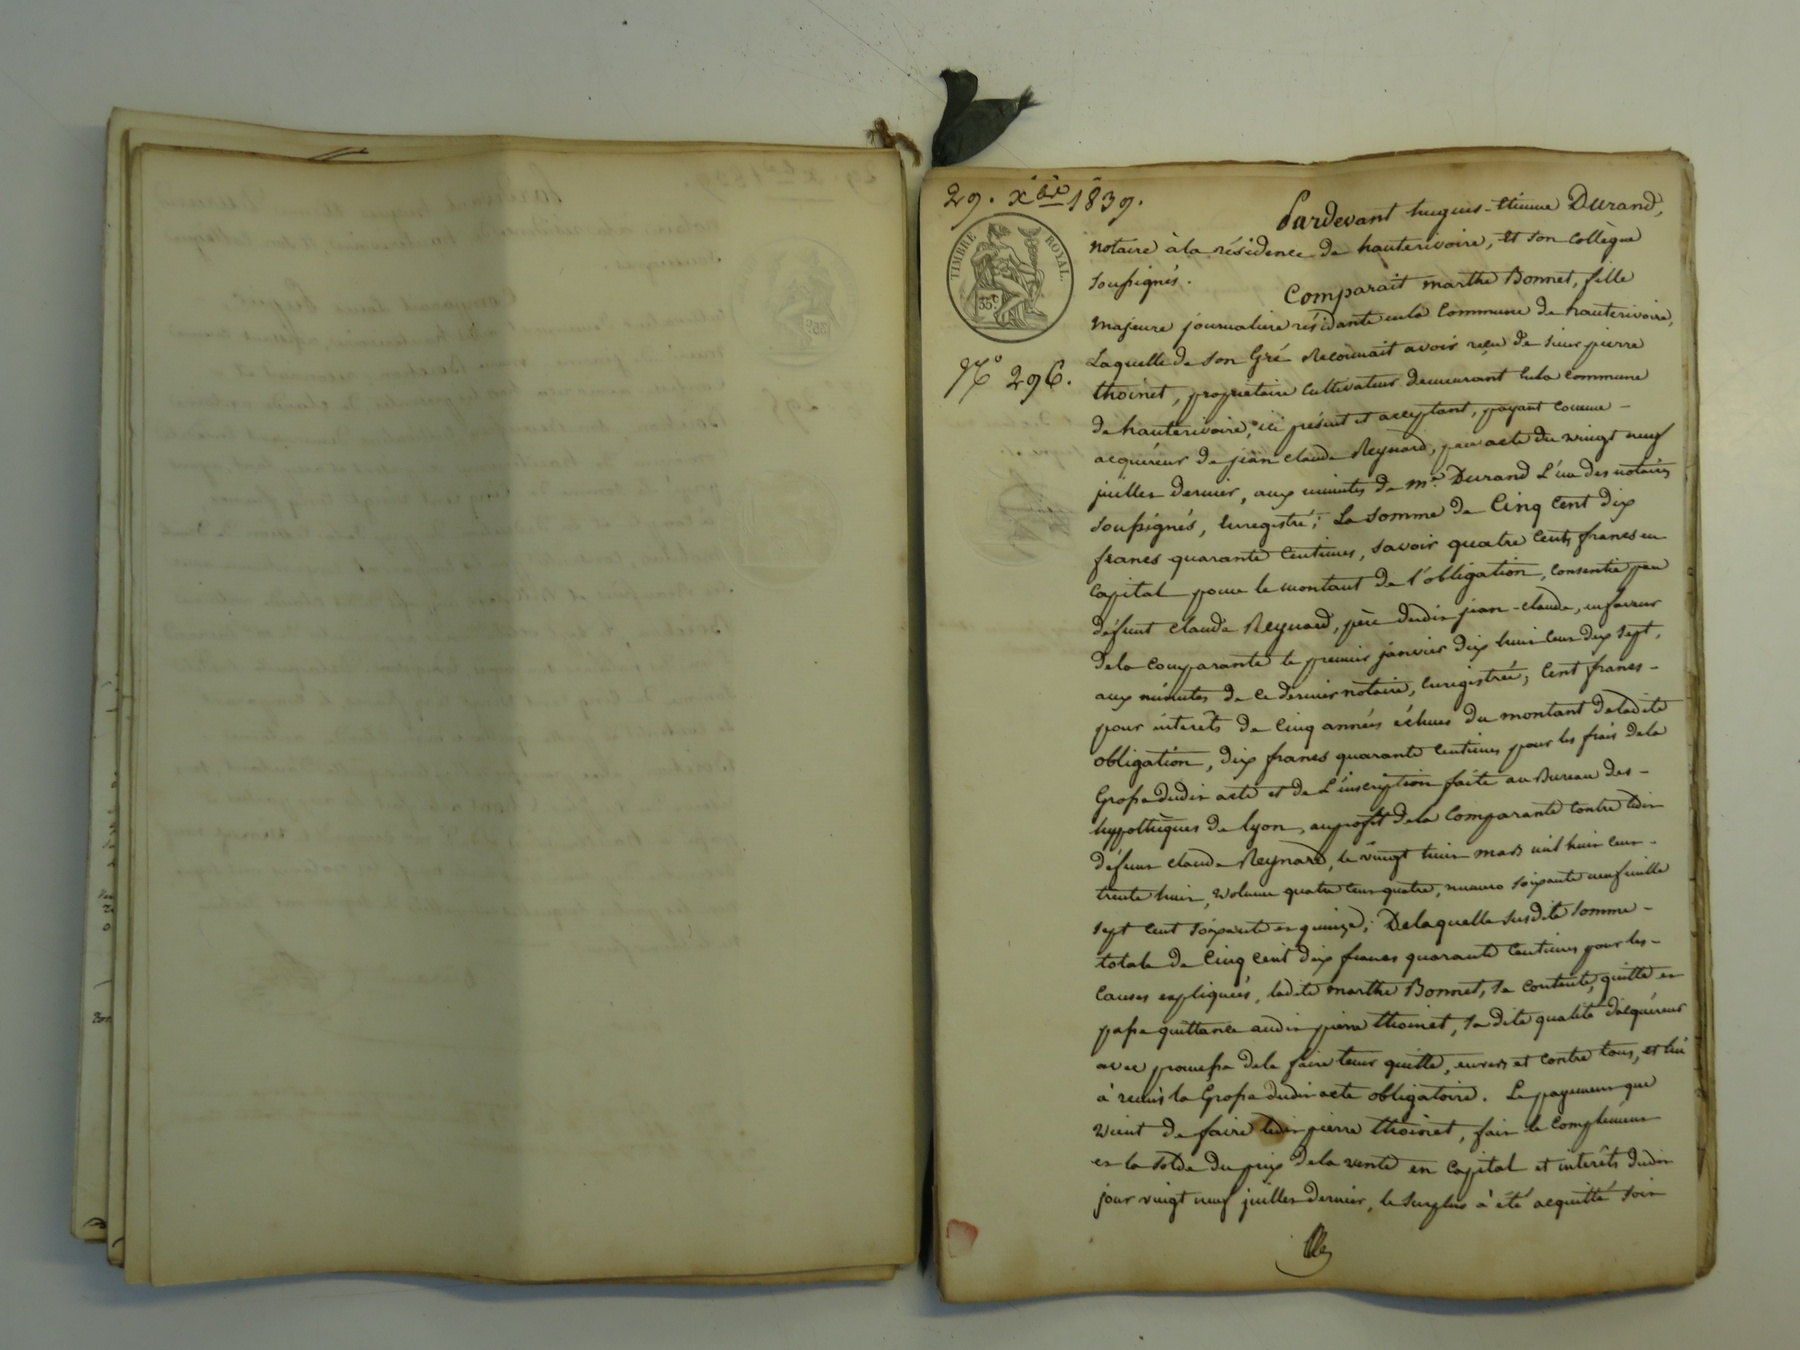 29. Xbre 1839.
TIMBRE ROYAL
35c
No 296.
Pardevant hugues-Etienne Durand,
notaire à la résidence de hauterivoire, et son collègue
soussignés.
Comparait marthe Bonnet, fille
majeure journalière résidante en la Commune de hauterivoire,
Laquelle de son Gré Reconnait avoir reçu de sieur pierre
thoinet, propriétaire cultivateur demeurant en la commune
de hauterivoire, ici présent et acceptant, payant comme -
acquéreur de jean claude Reynard, par acte du vingt neuf
juillet dernier, aux minutes de me. Durand L'un des notaires
soussignés, Enregistré; La somme de Cinq Cent dix
francs quarante Centimes, savoir quatre Cents francs en
Capital pour le montant de l'obligation, consentie par
défunt claude Reynard, père dudit jean-claude, en faveur
de la Comparante le premier janvier dix huit cent dix sept,
aux minutes de ce dernier notaire, Enregistrée; Cent francs -
pour intérêts de Cinq années échues du montant de ladite
obligation, dix francs quarante centimes pour les frais de la
Grosse dudit acte et de L'inscription faite au Bureau des -
hypothèques de lyon, au profit de la Comparante contre ledit
défunt claude Reynard, le vingt huit mars mil huit cent -
trente huit, volume quatre cent quatre, numero soixante neuf mille
sept cent soixante et quinze; De laquelle susdite somme -
totale de Cinq cent dix francs quarante Centimes pour les -
Causes expliquées, ladite marthe Bonnet, se contente, quitte et
passe quittance audit pierre thoinet, sa dite qualité d'acquéreur
avec promesse de le faire tenir quitte, envers et contre tous, et lui
à remis la Grosse dudit acte obligatoire. Le payement que
vient de faire ledit pierre thoinet, fait le Complément
et la solde du prix de la vente en Capital et intérêts dudit
jour vingt neuf juillet dernier, le surplus à été acquitté soit